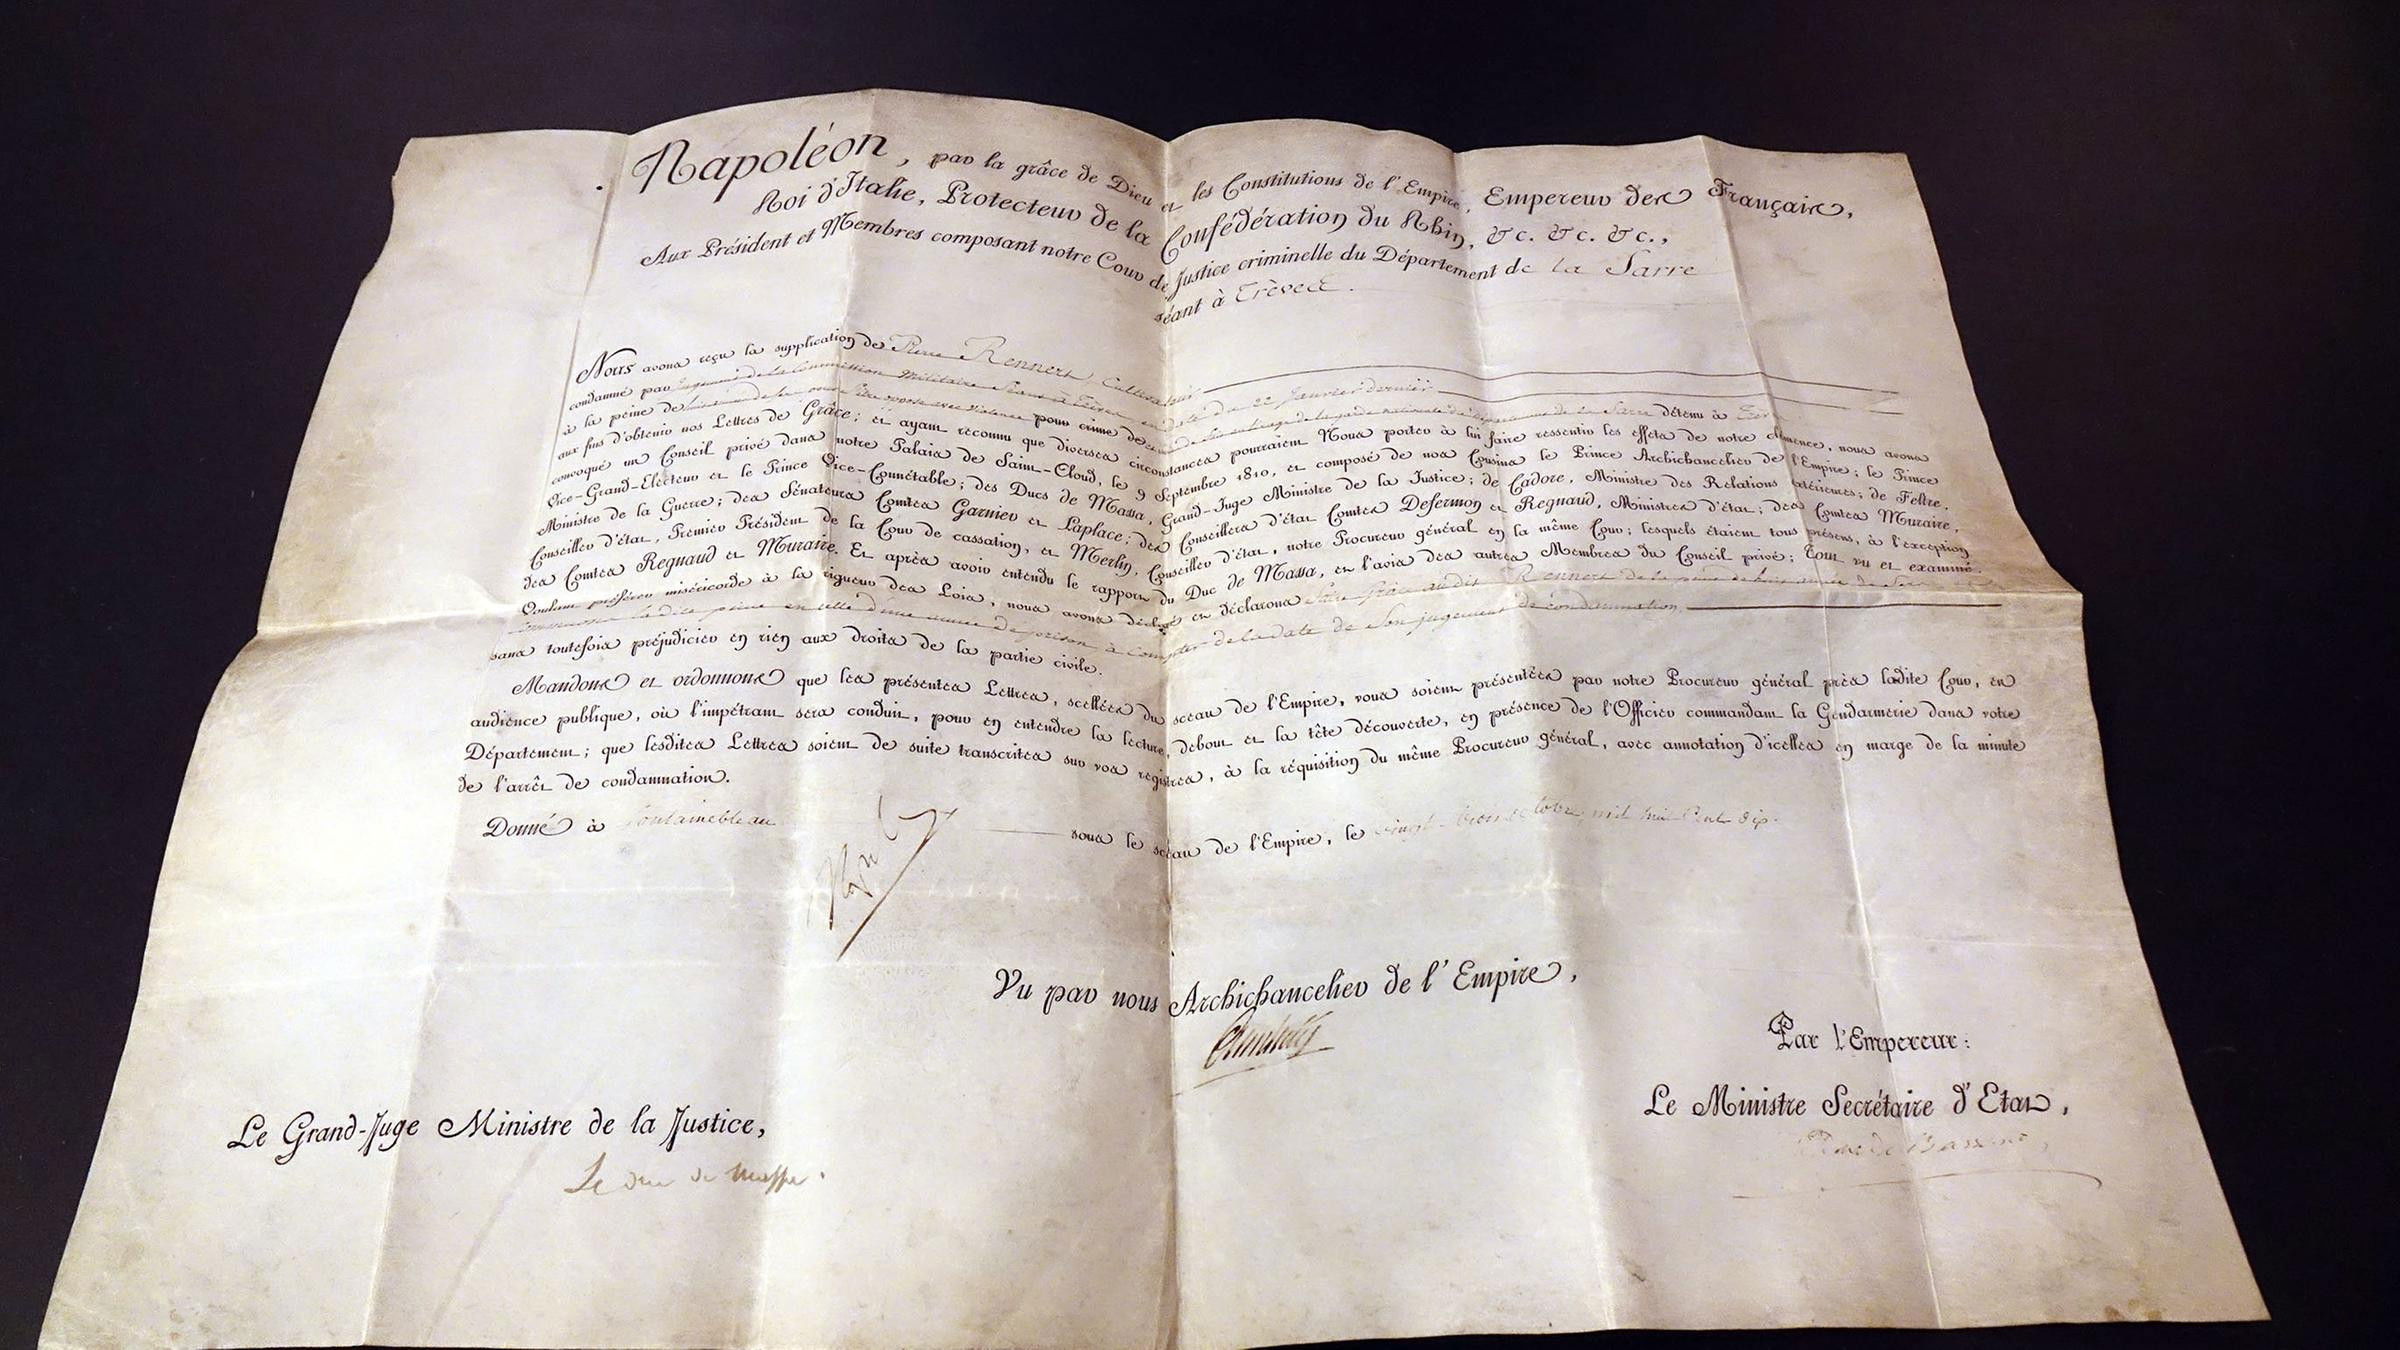 Napoléon, par la grâce de Dieu et les Constitutions de l'Empire, Empereur des Français,
Roi d'Italie, Protecteur de la Confédération du Rhin, &c. &c. &c.,
Aux Président et Membres composant notre Cour de Justice criminelle du Département de la Sarre
séant à Trèves.
Nous avons reçu la supplication de Pierre Rennert, Cultivateur
condamné par jugement de la Commission Militaire Séant à Trèves en date du 22 Janvier dernier
à la peine de pour crime de de la garde nationale du département de la Sarre détenu à
aux fins d'obtenir nos Lettres de Grâce; et ayant reconnu que diverses circonstances pourraient Nous porter à lui faire ressentir les effets de notre clémence, nous avons
convoqué un Conseil privé dans notre Palais de Saint-Cloud, le 9 Septembre 1810, et composé de nos Cousins le Prince Archichancelier de l'Empire; le Prince
Vice-Grand-Electeur et le Prince Vice-Connétable; des Ducs de Massa, Grand-Juge Ministre de la Justice; de Cadore, Ministre des Relations extérieures; de Feltre,
Ministre de la Guerre; des Sénateurs Comtes Garnier et Laplace; des Conseillers d'état Comtes Defermon et Regnaud, Ministres d'état; des Comtes Muraire,
Conseiller d'état, Premier Président de la Cour de cassation, et Merlin, Conseiller d'état, notre Procureur général en la même Cour; lesquels étaient tous présens, à l'exception
des Comtes Regnaud et Muraire. Et après avoir entendu le rapport du Duc de Massa, et l'avis des autres Membres du Conseil privé; Tout vu et examiné.
Voulant préférer miséricorde à la rigueur des Lois, nous avons déclaré et déclarons faire Grâce audit Rennert de la peine de huit années de
Commuons la dite peine en celle d'une année de prison, à compter de la date de Son jugement de condamnation
sans toutefois préjudicier en rien aux droits de la partie civile.
Mandons et ordonnons que les présentes Lettres, scellées du sceau de l'Empire, vous soient présentées par notre Procureur général près ladite Cour, en
audience publique, où l'impétrant sera conduit, pour en entendre la lecture, debout et la tête découverte, en présence de l'Officier commandant la Gendarmerie dans votre
Département; que lesdites Lettres soient de suite transcrites sur vos registres, à la réquisition du même Procureur général, avec annotation d'icelles en marge de la minute
de l'arrêt de condamnation.
Donné à Fontainebleau sous le sceau de l'Empire, le vingt trois octobre, mil huit Cent dix.
Vu par nous Archichancelier de l'Empire,
Par l'Empereur:
Le Ministre Secrétaire d'Etat,
Le Duc de Bassano
Le Grand-Juge Ministre de la Justice,
Le duc de Massa.